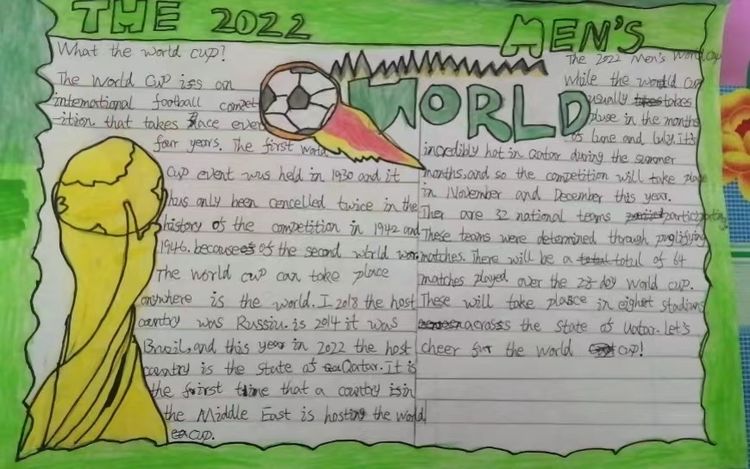 THE 2022 MEN'S
WORLD
What the world cup?
The World Cup is an
international football compet
-ition that takes place ever
four years. The first world
cup event was held in 1930 and it
has only been cencelled twice in the
history of the competition in 1942 and
1946. because of the second world war
The world cup can take place
anywhere is the world. I 2018 the host
country was Russiu. is 2014 it was
Brazil, and this year in 2022 the host
country is the state of Qatar. It is
the first time that a country is in
the Middle East is hosting the world
cup.
The 2022 Men's World Cup
While the world cup
usually takes
place in the months
of June and July, it's
incredibly hot in Qatar during the summer
months. and so the competition will take place
in November and December this year.
Ther are 32 national teams participating
These teams were determined through
matches. There will be a totul of 64
matches played over the day world cup.
These will take place in eight stadiums
across the state of Uatar. Let's
cheer for the world cup!